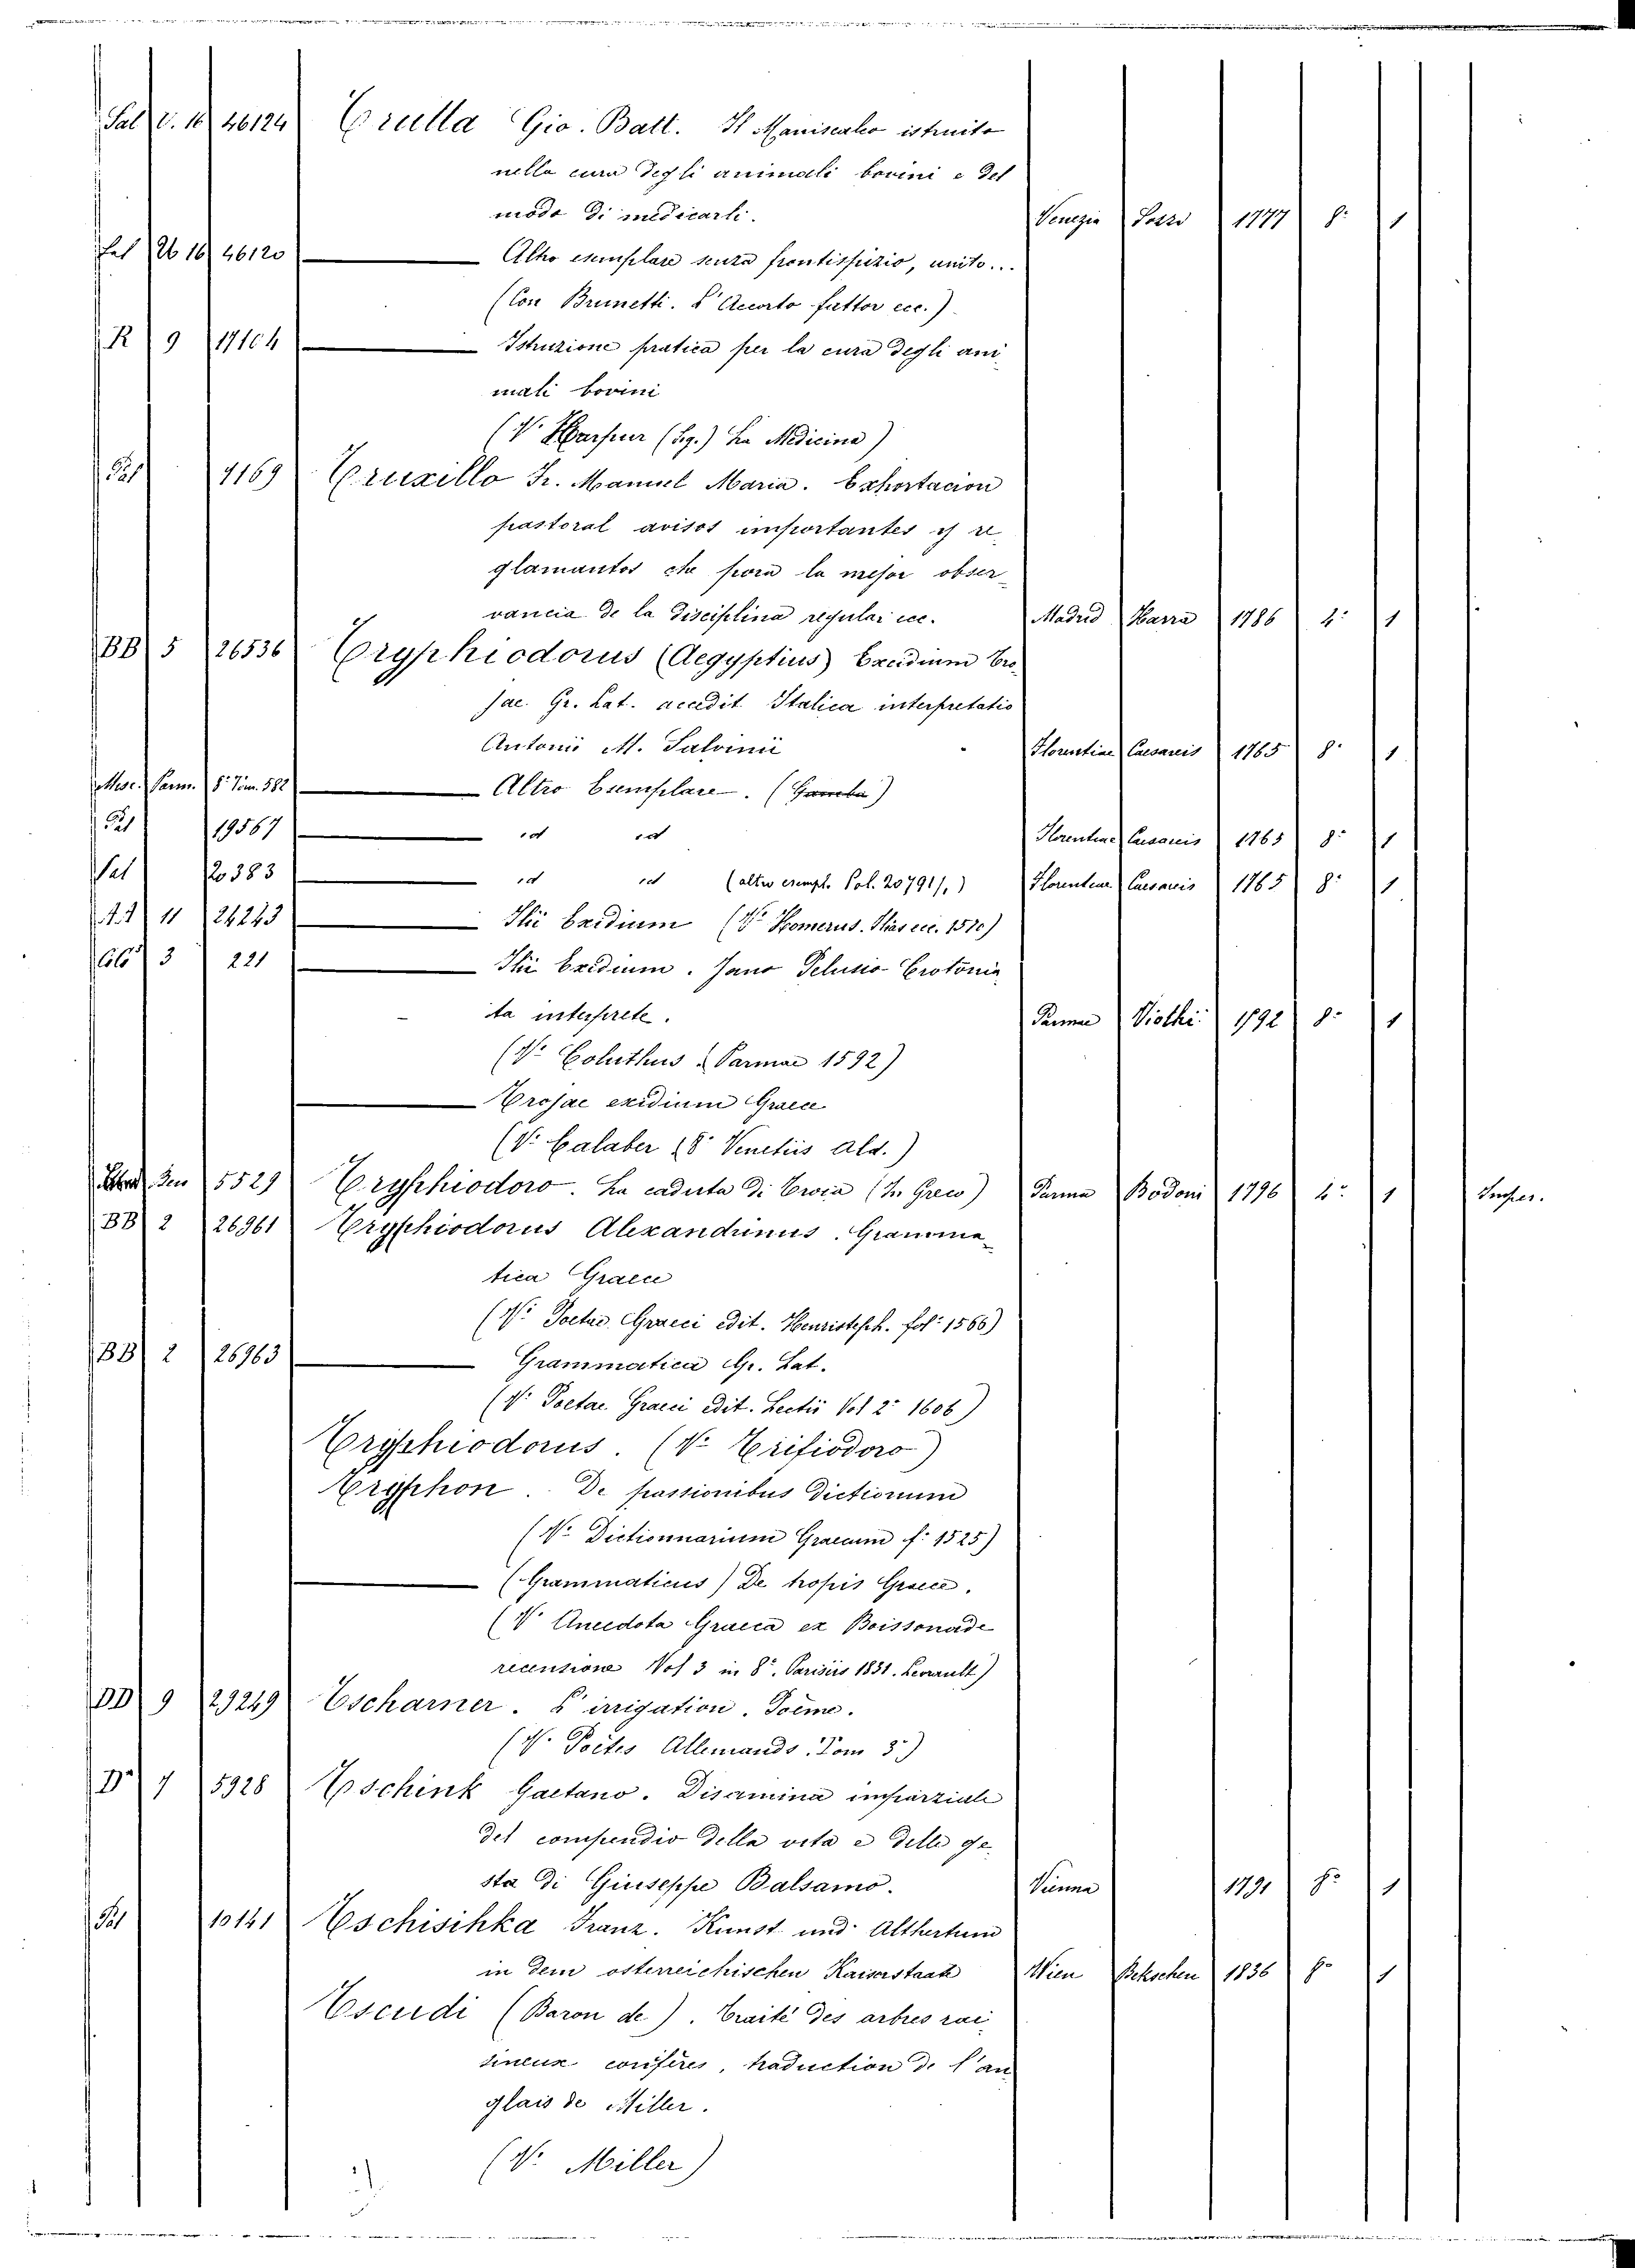 Sal V. 16 46124 Trulla Gio. Batt. Il Maniscalco istruito
nella cura degli animali bovini e del
modo di medicarli. Venezia Pozzo 1777 8° 1
Sal V 16 46120 Altro esemplare senza frontispizio, unito...
(Con Brunetti. L'Acorto fattor ecc.)
R 9 17104 Istruzione pratica per la cura degli ani
mali bovini
(V. Harpeur (Eg.) La Medicina)
Pal 7169 Truxillo Fr. Manuel Maria. Exhortacion
pastoral avisos importantes y re
glamantos che para la mejor obser
vancia de la disciplina regular ecc. Madrid Ibarra 1786 4° 1
BB 5 26536 Tryphiodorus (Aegyptius) Excidium Tro
jae. Gr. Lat. accedit Italica interpretatio
Antonii M. Salvinii Florentiae Caesareis 1765 8° 1
Misc. Parm. 8° Tom. 582 Altro Esemplare. (Gamba)
Pal 19567 id id Florentiae Caesareis 1765 8° 1
Pal 20383 id id (altro esempl. Pal. 20791/1) Florentiae Caesareis 1765 8° 1
11 24243 Ilii Excidium (V. Homerus. Ilias ecc. 1570)
3 221 Ilii Excidium. Jano Pelusio Crotonia
ta interprete. Parmae Viothi 1592 8° 1
(V. Coluthus Parmae 1592)
Trojae excidium Graece
(V. Calaber 8° Venetiis Ald.)
5529 Tryphiodoro. La caduta di Troia (In Greco) Parma Bodoni 1796 4° 1
BB 2 26961 Tryphiodorus Alexandrinus. Gramma
tica Graece
(V. Poetae Graeci edit. Henristeph. fol. 1566)
BB 2 26963 Grammatica Gr. Lat.
(V. Poetae Graeci edit. Lectii Vol 2° 1606)
Tryphiodorus. (V. Trifiodoro)
Tryphon. De passionibus dictionum
(V. Dictionnarium Graecum f. 1525)
(Grammaticus) De tropis Graece.
(V. Anecdota Graeca ex Boissonade
recensione Vol 3 in 8°. Parisiis 1831. Levrault)
DD 9 29249 Tscharner. L'irrigation. Poëme.
(V. Poètes Allemands. Tom 3°)
D 7 5928 Tschink Gaetano. Disamina imparziale
del compendio della vita e delle ge
sta di Giuseppe Balsamo. Vienna 1791 8° 1
Pal 10141 Tschischka Franz. Kunst und Alterthum
in dem österreichischen Kaiserstaate Wien 1836 8° 1
Tscudi (Baron de). Traité des arbres rai
sineux conifères, traduction de l'an
glais de Miller.
(V. Miller)